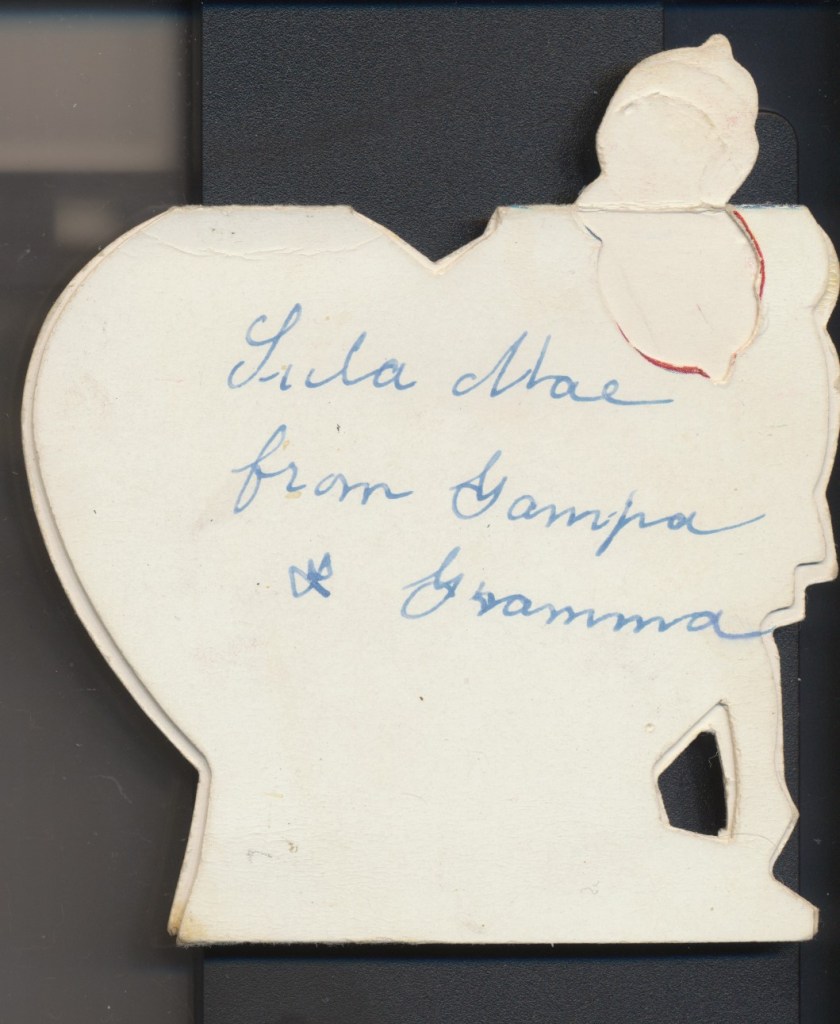 Lula Mae
from Gampa
& Gramma